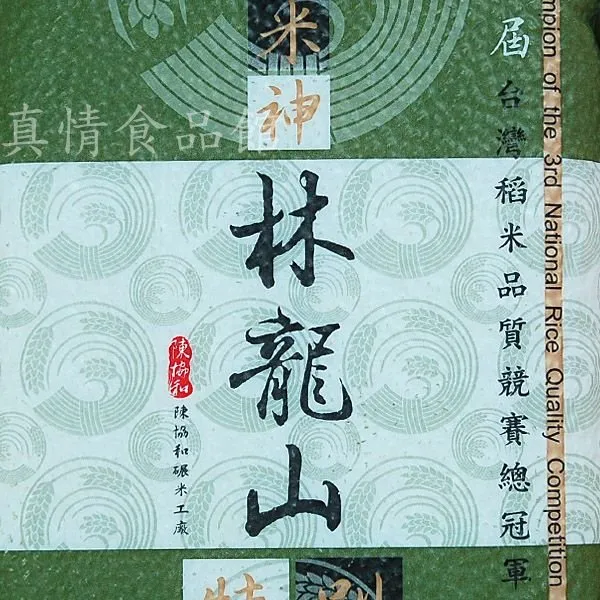 屆台灣稻米品質競賽總冠軍
mpion of the 3rd National Rice Quality Competition
米神
林龍山
陳協和
陳協和碾米工廠
真情食品館